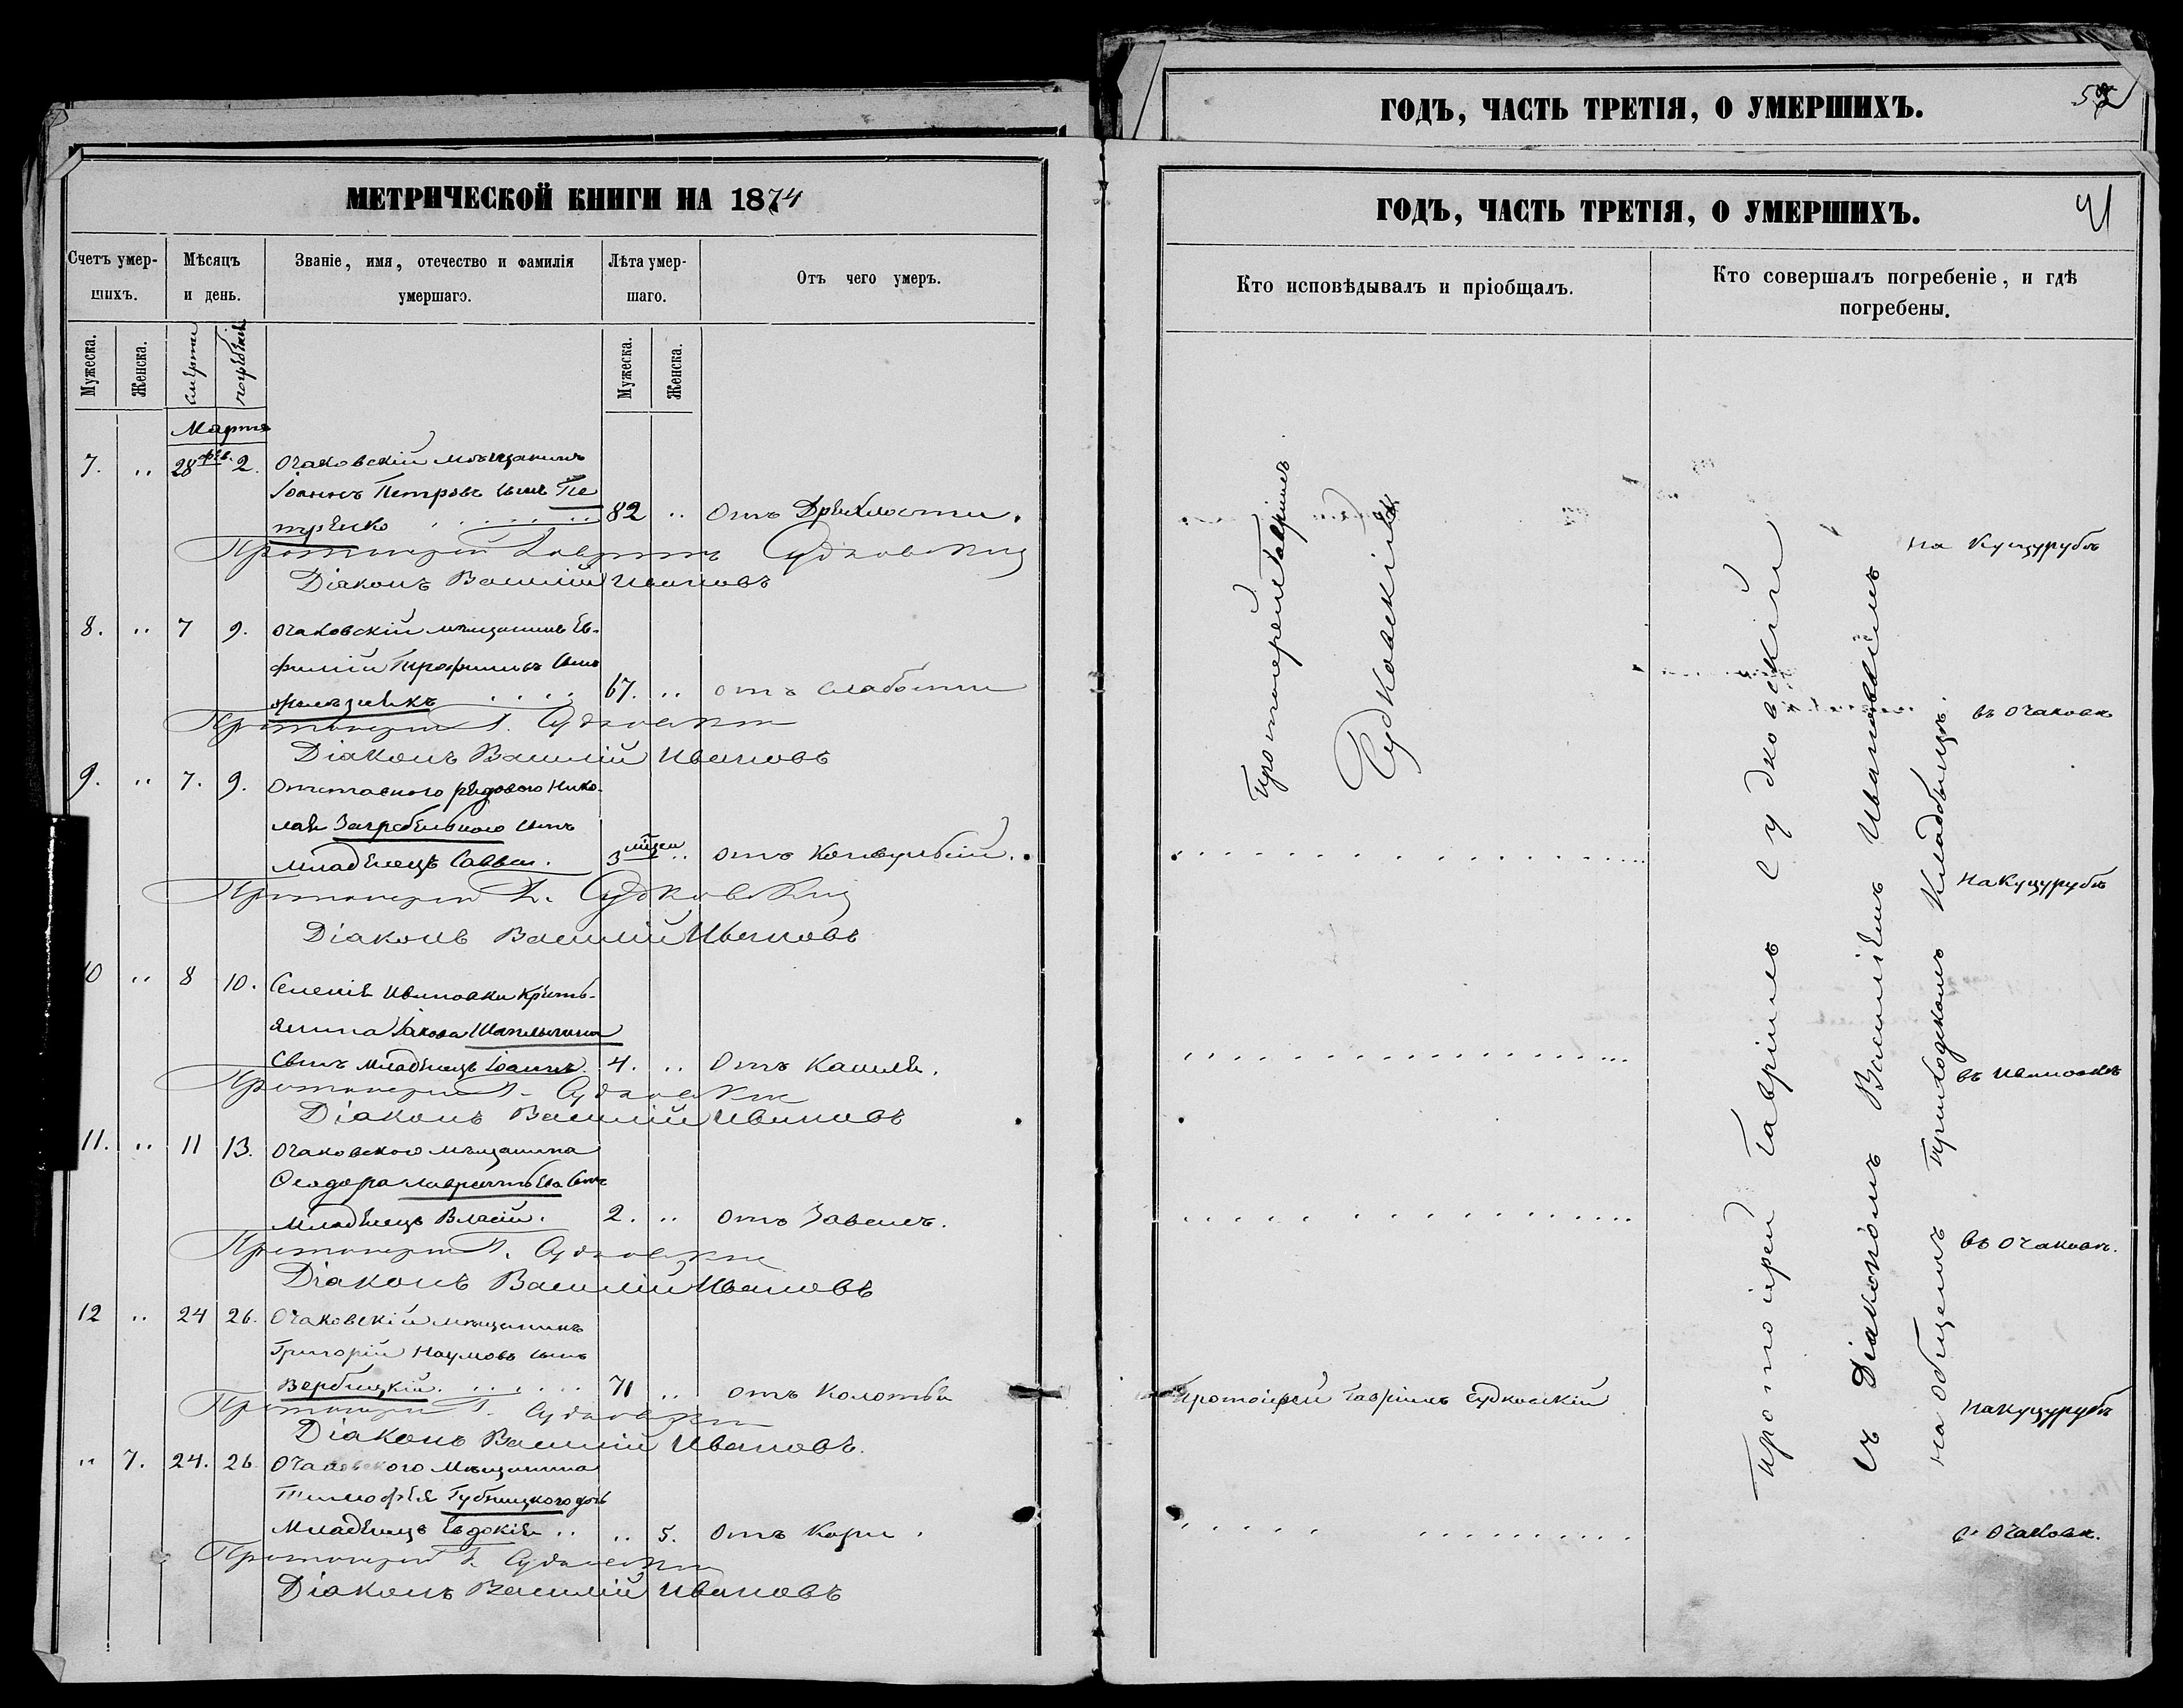 МЕТРИЧЕСКОЙ КНИГИ НА 1874
Счетъ умер-
шихъ.
Мѣсяцъ
и день.
Званіе, имя, отечество и фамилія
умершаго.
Лѣта умер-
шаго.
Отъ чего умеръ.
Мужеска.
Женска.
смерти
погребенія
Мужеска.
Женска.
Марта
7. .. 28 фев. 2. Очаковскій мѣщанинъ
Іоаннъ Петровъ сынъ Пе
тренко 82 .. Отъ Дряхлости.
Протоіерей Гавріилъ Судковскій
Діаконъ Василій Ивановъ
8. .. 7 9. Очаковскій мѣщанинъ Ев-
фимій Трофимовъ сынъ
67. .. отъ слабости
Протоіерей Г. Судковскій
Діаконъ Василій Ивановъ
9. .. 7. 9. Отставного рядового Нико-
лая Загребельного сынъ
младенецъ Савва. 3 мѣсяц .. отъ Конвульсій.
Протоіерей Г. Судковскій
Діаконъ Василій Ивановъ
10 .. 8 10. Селенія Ивановки Крестъ-
янина Іакова
Сынъ младенецъ Іоаннъ. 4. .. Отъ Кашля.
Протоіерей Г. Судковскій
Діаконъ Василій Ивановъ
11. .. 11 13. Очаковского мѣщанина
Ѳеодора Лаврентьева сынъ
Младенецъ Власій. 2. .. Отъ
Протоіерей Г. Судковскій
Діаконъ Василій Ивановъ
12 .. 24 26. Очаковскій мѣщанинъ
Григорій Наумовъ сынъ
Вербицкій. 71 .. отъ Колотья
Протоіерей Г. Судковскій
Діаконъ Василій Ивановъ.
.. 7. 24. 26. Очаковского Мѣщанина
Тимофея Губницкого дочь
Младенецъ Евдокія .. .. 5. Отъ Кори.
Протоіерей Г. Судковскій
Діаконъ Василій Ивановъ
ГОДЪ, ЧАСТЬ ТРЕТІЯ, О УМЕРШИХЪ.
ГОДЪ, ЧАСТЬ ТРЕТІЯ, О УМЕРШИХЪ.
Кто исповѣдывалъ и пріобщалъ.
Кто совершалъ погребеніе, и гдѣ
погребены.
Протоіерей Гавріилъ
Судковскій
Протоіерей Гавріилъ Судковскій
Протоіерей Гавріилъ Судковскій
съ Діакономъ Василіемъ
на общемъ приходскомъ Кладбищѣ.
на Куцурубѣ
въ Очаковѣ
на Куцурубѣ
въ Ивановкѣ
въ Очаковѣ.
на Куцурубѣ
въ Очаковѣ.